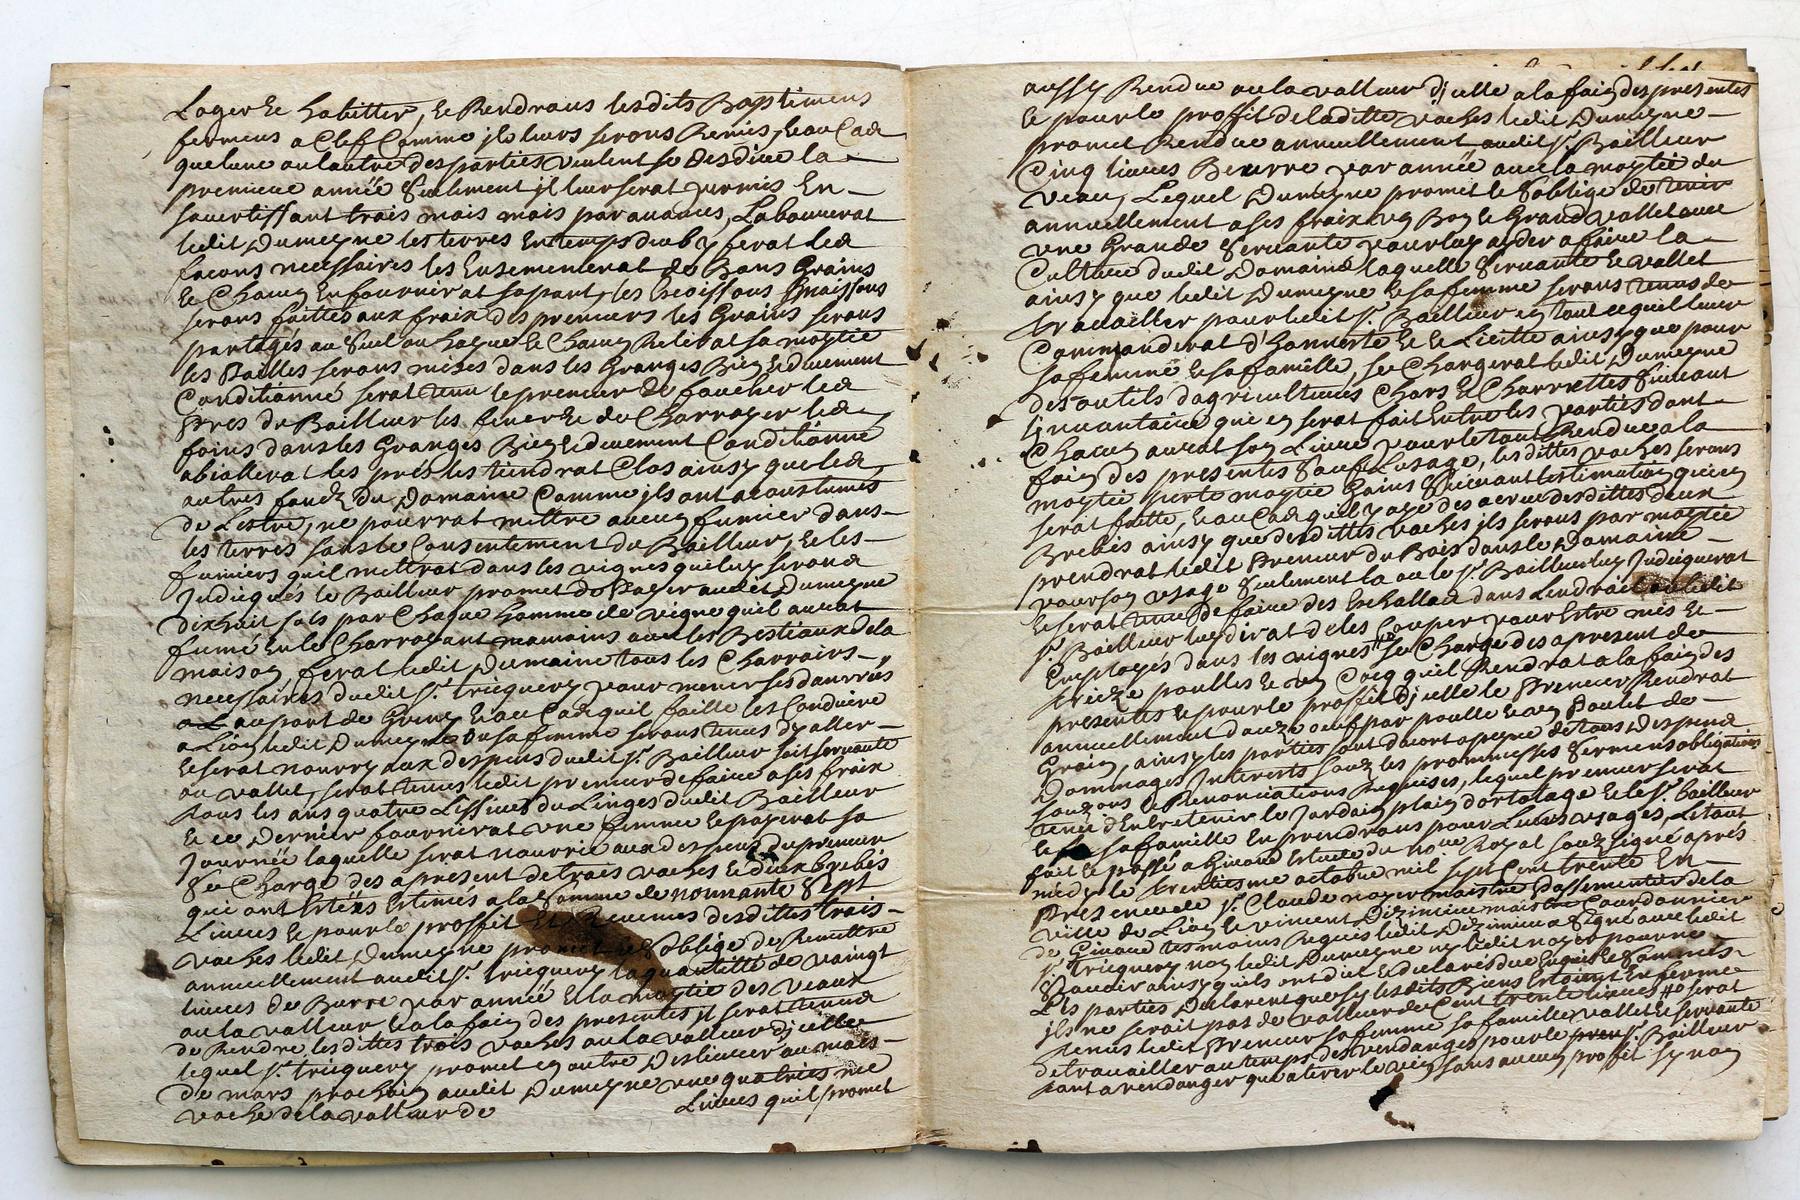 Loger et habitter, et Rendrons lesdits Baptimens
fermens a Clef Comme jls leurs serons Remis, et au Cas
que lune ou lautre des parties veulent se desdire la
premiere année seulement jl leur serat permis En
savertissant trois mois mois par avances, Labourerat
ledit Dumeyne les terres En temps du by ferat les
facons necessaires les Ensemencerat de Bons Grains
et Chacun En fournirat sa part, les moissons
serons faittes aux fraix des premiers les Grains serons
partagés au Suel ou et Chacun Retirerat sa moytié
les Pailles serons mises dans les Granges Bien et duement
Conditionné serat tenu le preneur de faucher les
Pres du Bailleur les fener et de Charroyer les
foins dans les Granges Bien et duement Conditionné
abiallerat les prés les tiendrat Clos ainsy que les
autres fondz du Domaine Comme jls ont acoustumés
de Lestre, ne pourrat mettre aucun fumier dans
les terres sans le Consentement du Bailleur, et les
fumiers quil mettrat dans les vignes qui luy serons
Judiqués le Bailleur promet de Payer audit Dumeyne
dixhuit sols par Chaque homme de vigne quil aurat
fumé En le Charroyant avec les Bestiaux de la
maison, ferat ledit Dumaine tous les Charrois
necessaires dudit sr. tricquery pour mener ses danrrées
au port de Givors et au Cas quil faille les Conduire
a Lion ledit Dumeyne ou sa femme serons tenus dy aller
et serat nourry aux despens dudit sr. Bailleur soit servante
ou vallet, serat tenus ledit preneur de faire a ses fraix
tous les ans quatre Lissives du Linges dudit Bailleur
et ce Dernier fournirat une femme et payerat sa
Journée laquelle serat nourrie aux despens du preneur
se Charge des apresent de trois vaches et deux brebis
qui ont Estées Estimés a la Somme de nonnante Sept
Livres et pour le proffit Et Revenus desdittes trois
vaches ledit Dumeyne promet et soblige de Remettre
annuellement audit sr. tricquery la quantitte de vaingt
livres de Burre par année et la moytié des veaux
ou la valleur et a la fain des presentes jl serat tenus
de Rendre lesdittes trois vaches ou la valleur djcelles
lequel sr. tricquery promet en outre Deslivrer au mois
de mars prochain audit Dumeyne une quatriesme
vache de la valleur de Livres quil promet
aussy Rendre ou la valleur djcelle a la fain des presentes
et pour le proffit de laditte vaches ledit Dumeyne
promet Rendre annuellement audit sr. Bailleur
Cinq livres Beurre par année avec la moytié du
veau, Lequel Dumeyne promet et soblige de tenir
annuellement a ses fraix un Bon et Grand vallet avec
une Grande Servante pour luy ayder a faire la
Culture dudit Domaine laquelle Servante et vallet
ainsy que ledit Dumeyne et sa femme serons tenus de
travailler pour ledit sr. Bailleur en tout ce quil leur
Commanderat d'Honneste et Licitte ainsy que pour
sa femme et sa famille, se Chargerat ledit Dumeyne
des outils dagricultures Chars et Charrettes Suivant
linvantaire que en serat fait Entre les parties dont
Chacun aurat son Livre pour le tout Rendre a la
fain des presentes sauf Lusage, lesdittes vaches serons
moytié perte moytié Gains suivant lestimation qui en
serat faitte, et au Cas quil y aye des acrue desdittes deux
Brebis ainsy que desdittes vaches jls serons par moytié
prendrat ledit Preneur du Bois dans le Domaine
pour son usage seulement la ou le sr. Bailleur luy Judiquerat
et serat tenus de faire des Eschallas dans Lendroit ou ledit
sr. Bailleur luy dirat de les Couper pour Estre mis et
Employés dans les vignes se Charge des apresent de
treize poulles et un Cocq quil Rendrat a la fain des
presentes et pour le proffit djcelle le Preneur Rendrat
annuellement douze oeuf par poulle et un Poulet de
Grain, ainsy les parties sont dacort a peyne de tous Despens
Dommages Interests sous les prommesses Sermens obligations
Renonciations Requises, lequel preneur serat
tenu d'Entretenir le Jardain plain dortolage et le sr. bailleur
et sa famille En prendrons pour Leurs usages, Estant
fait et passé a Givord Estude du no.re Royal souz signé après
midy le trentiesme octobre mil sept Cent trente En
Presence de sr. Claude noyer maistre Passementier de la
ville de Lion et vincent Dizimieu maistre Courdonnier
de Givord tesmoins Requis ledit Dizimieu a signé avec ledit
sr. tricquery non ledit Dumeyne ny ledit noyer pour ne
scavoir ainsy quils ont dit et declarés de Enquis et sommés
Les parties Declarent que sy lesdits Biens Estoient En ferme
jls ne serait pas de valleur de Cent trente livres serat
tenus ledit Preneur sa femme sa famille vallet et servante
de travailler au temps des vendanges pour le sr. Bailleur
tant a vendanger que a tirer le vin sans aucun proffit sy non